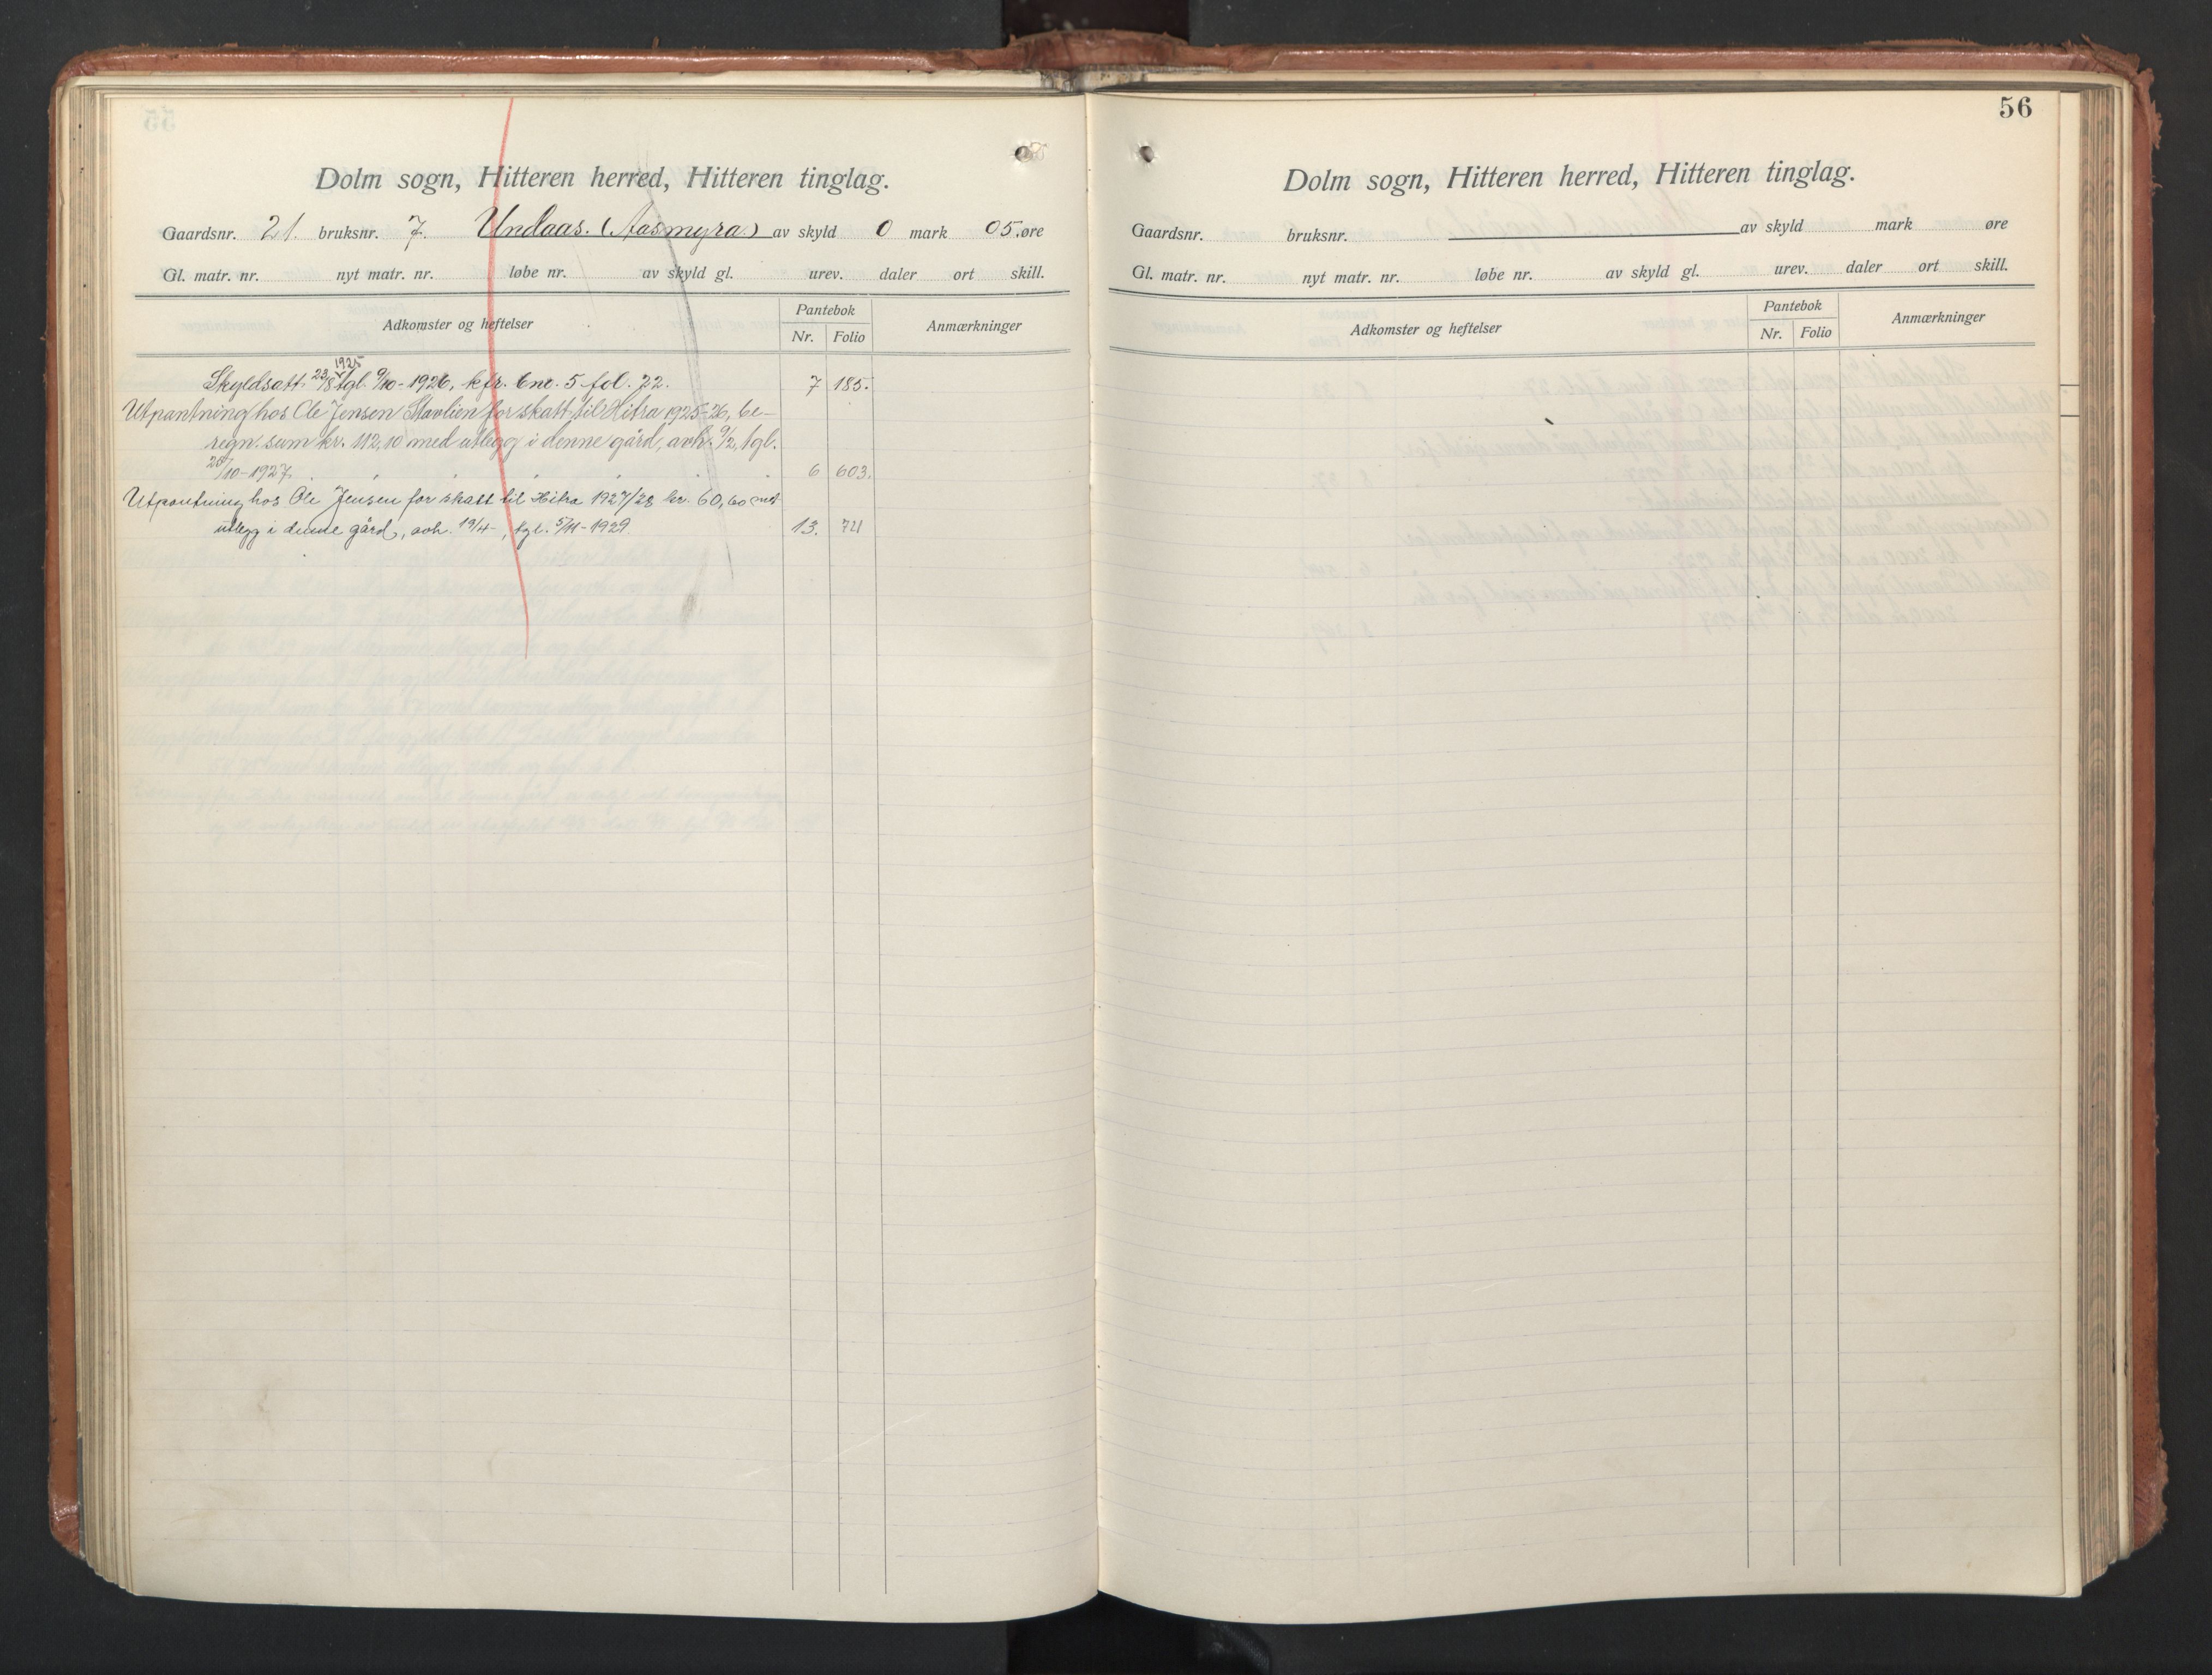 Dolm sogn, Hitteren herred, Hitteren tinglag.
Gaardsnr. 21. bruksnr. 7. Undaas. (Aasmyra.) av skyld 0 mark 05. øre
Gl. matr. nr. nyt matr. nr. løbe nr. av skyld gl. urev. daler ort skill.
Adkomster og heftelser Pantebok Anmærkninger
Nr. Folio
Skyldsatt 23/8 1925 tgl. 9/10-1926, kfr. bnr. 5 fol. 22. 7 185.
Utpantning hos Ole Jensen for skatt til Hitra 1925-26, be-
regn. sum kr. 112,10 med utlegg i denne gård, avh. 9/2, tgl.
/10-1927. 6 603.
Utpantning hos Ole Jensen for skatt til Hitra 1927/28 kr. 60,60 med
utlegg i denne gård, avh. 19/4-, tgl. 5/11-1929. 13. 721
56
Dolm sogn, Hitteren herred, Hitteren tinglag.
Gaardsnr. bruksnr. av skyld mark øre
Gl. matr. nr. nyt matr. nr. løbe nr. av skyld gl. urev. daler ort skill.
Adkomster og heftelser Pantebok Anmærkninger
Nr. Folio